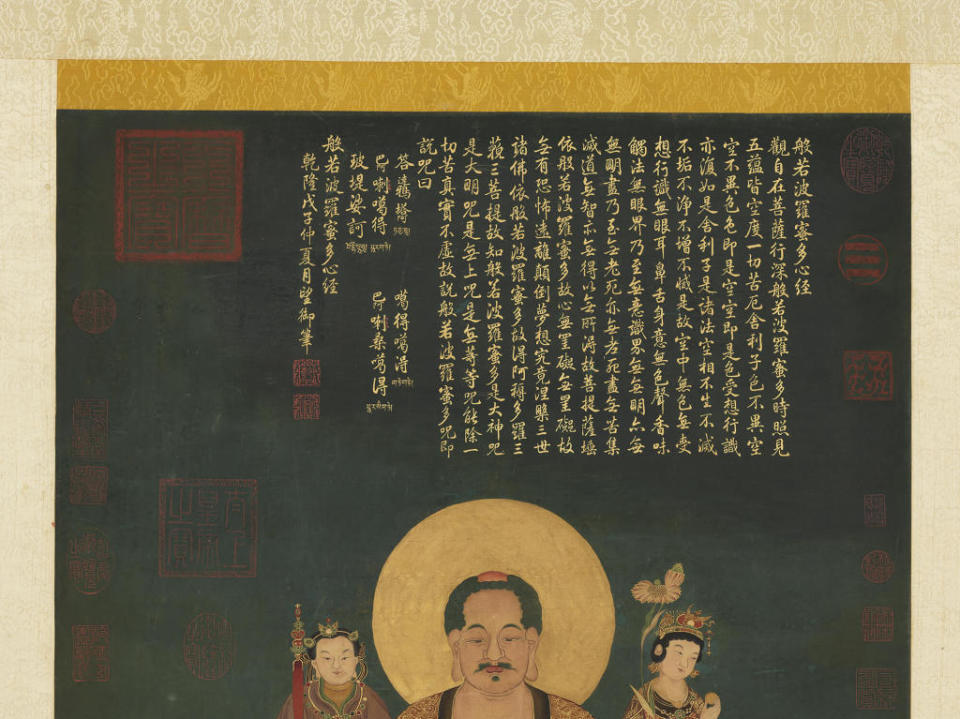 般若波羅蜜多心經
觀自在菩薩行深般若波羅蜜多時照見
五蘊皆空度一切苦厄舍利子色不異空
空不異色色即是空空即是色受想行識
亦復如是舍利子是諸法空相不生不滅
不垢不淨不增不減是故空中無色無受
想行識無眼耳鼻舌身意無色聲香味
觸法無眼界乃至無意識界無無明亦無
無明盡乃至無老死亦無老死盡無苦集
滅道無智亦無得以無所得故菩提薩埵
依般若波羅蜜多故心無罣礙無罣礙故
無有恐怖遠離顛倒夢想究竟涅槃三世
諸佛依般若波羅蜜多故得阿耨多羅三
藐三菩提故知般若波羅蜜多是大神咒
是大明咒是無上咒是無等等咒能除一
切苦真實不虛故說般若波羅蜜多咒即
說咒曰
噶得噶得
喇噶得 喇桑噶得
堤娑訶
般若波羅蜜多心經
乾隆戊子仲夏月望御筆
太上皇帝之寶